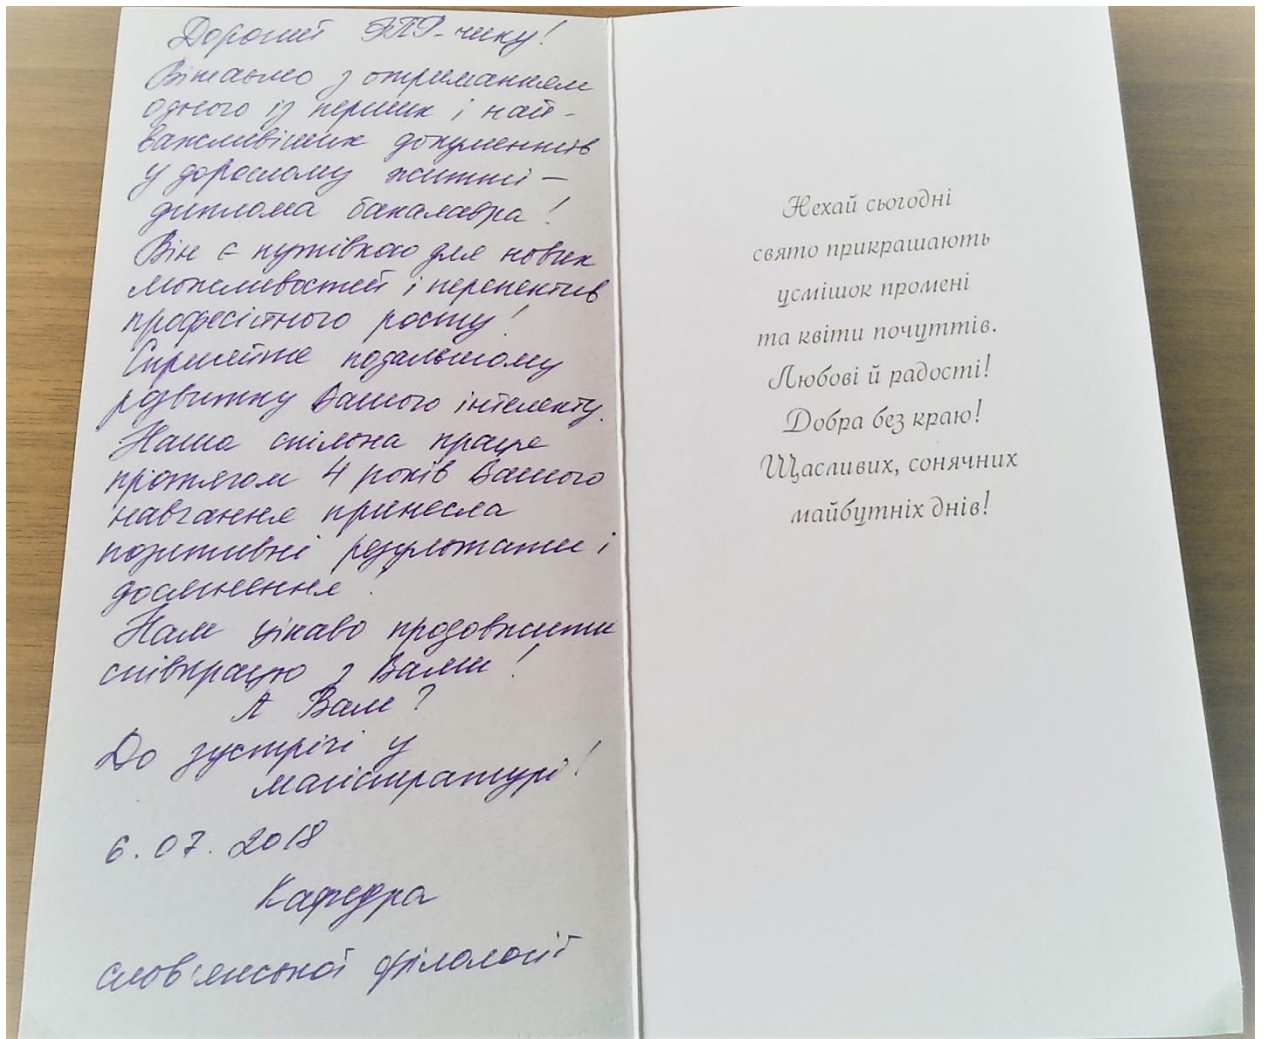 Дорогий ЯПФ-чику!
Вітаємо з отриманням
одного із перших і най-
важливіших документів
у дорослому житті –
диплома бакалавра!
Він є путівкою для нових
можливостей і перспектив
професійного росту!
Сприяйте подальшому
розвитку Вашого інтелекту.
Наша спільна праця
протягом 4 років Вашого
навчання принесла
позитивні результати і
досягнення!
Нам цікаво продовжити
співпрацю з Вами!
А Вам?
До зустрічі у
магістратурі!
6.07.2018
Кафедра
слов'янської філології
Нехай сьогодні
свято прикрашають
усмішок промені
та квіти почуттів.
Любові й радості!
Добра без краю!
Щасливих, сонячних
майбутніх днів!